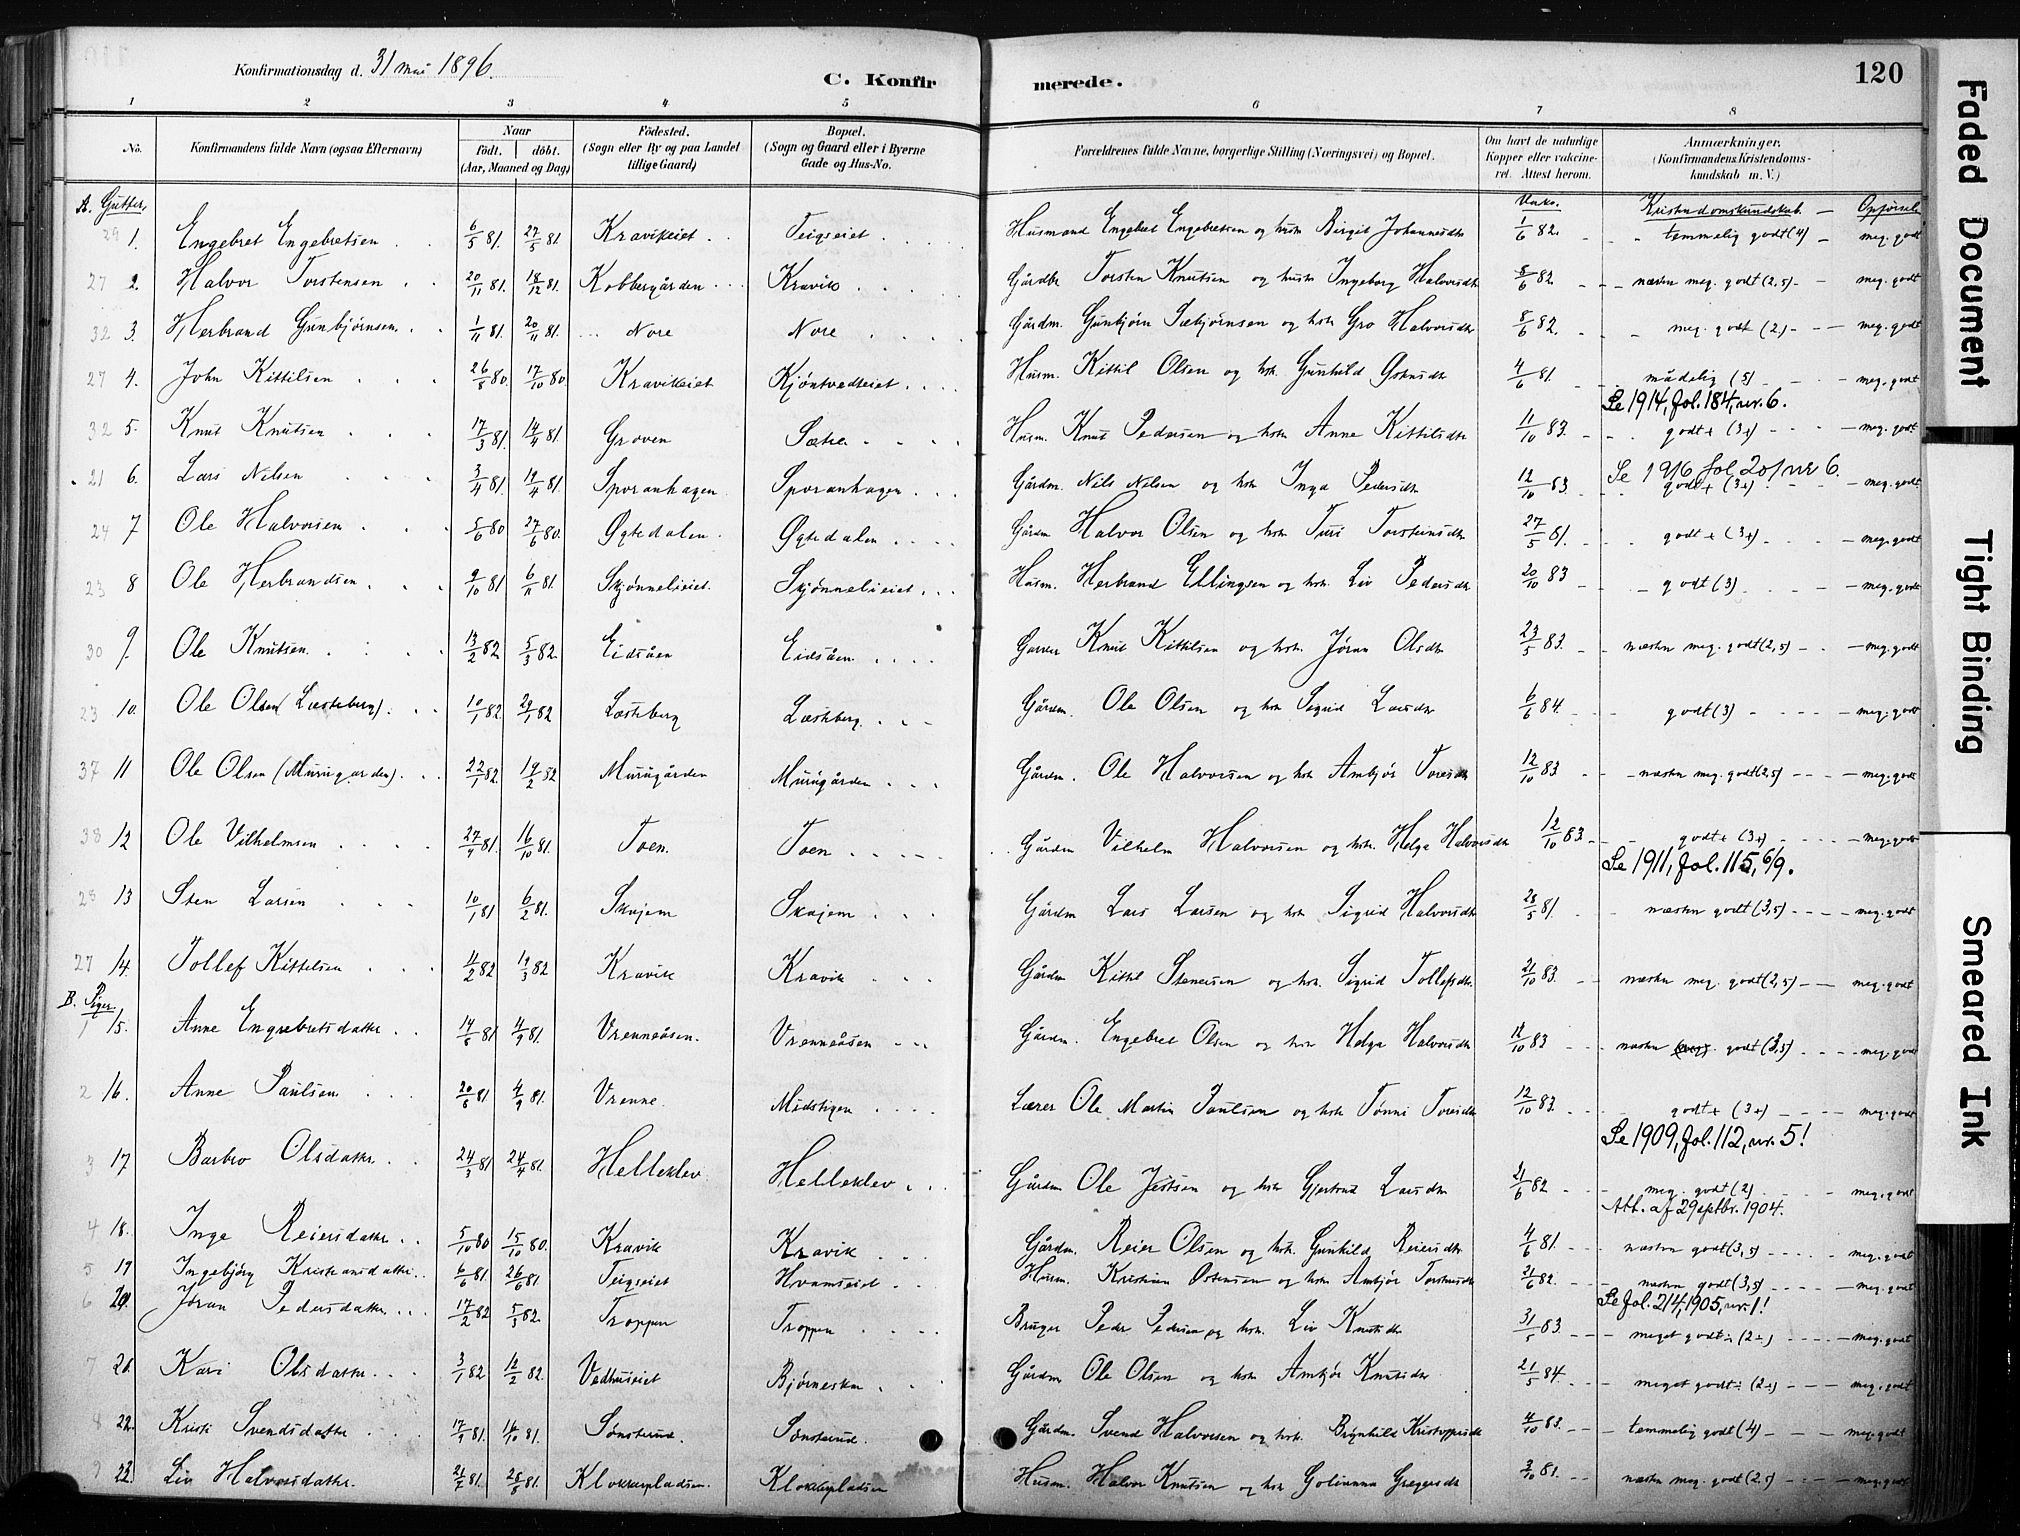 Konfirmationsdag d. 31 mai 1896.
C. Konfirmerede.
120
1 2 3 4 5 6 7 8
No. Konfirmandens fulde Navn (ogsaa Efternavn) Naar født. døbt. (Aar, Maaned og Dag) Fødested. (Sogn eller By og paa Landet tillige Gaard) Bopæl. (Sogn og Gaard eller i Byerne Gade og Hus-No. Forældrenes fulde Navne, borgerlige Stilling (Næringsvei) og Bopæl. Om havt de naturlige Kopper eller vakcineret. Attest herom. Anmærkninger. (Konfirmandens Kristendomskundskab m. V.)
A. Gutter. Vakc. Kristendomskundskab. — Opførsel
29 1. Engebret Engebretsen 6/5 81. 27/5 81 Kravikeiet Teigseiet Husmand Engebret Engebretsen og hust. Birgit Johannesdtr 1/6 82. temmelig godt (4) — meg. godt
27 2. Halvor Torstensen 20/11 81. 18/12 81. Kobbergården Kravik Gårdbr Torsten Knutsen og hustr Ingeborg Halvorsdtr 8/6 82. næsten meg. godt (2,5) — meg. godt
32 3. Herbrand Gunbjørnsen 1/11 81. 20/11 81. Nore Nore Gårdm. Gunbjørn Sebjørnsen og hstr Gro Halvorsdtr 8/6 82. meg. godt (2) — meg. godt
27 4. John Kittilsen 26/8 80. 17/10 80. Kravikeiet Kjøntvedteiet Husm. Kittil Olsen og hstr. Gunhild 4/6 81. mådelig (5) meg. godt
Se 1914, fol. 184, nr. 6.
32 5. Knut Knutsen 17/3 81. 14/4 81. Groven Sætre Husm. Knut Pedersen og hstr. Anne Kittilsdtr 11/10 83. godt+ (3+) — meg. godt
Se 1916 fol 201 nr 6.
21 6. Lars Nilsen 3/4 81. 19/4 81. Sporanhagen Sporanhagen Gårdm. Nils Nilsen og hstr Inga Pedersdtr 12/10 83 godt+ (3+) meg. godt
24 7 Ole Halvorsen 5/6 80 27/6 80. Øgtedalen Øgtedalen Gårdm Halvor Olsen og hstr Turi Torstensdtr 27/5 81. godt+ (3+) meg. godt
23 8 Ole Herbrandsen 9/10 81 6/11 81. Skjønnelieiet. Skjønnelieiet Husm. Herbrand Ellingsen og hstr. Liv Pedersdtr 20/10 83 godt (3) meg. godt
30 9. Ole Knutsen 13/2 82. 5/3 82. Eidsåen Eidsåen Knut Kittilsen og hstr. Jøran Olsdtr 23/5 83. næsten meg. godt (2,5) — meg. godt
23 10. Ole Olsen (Læsteberg) 10/1 82 29/1 82 Læsteberg Læsteberg Gårdm. Ole Olsen og hstr Sigrid Larsdtr 6/6 84. godt (3) meg. godt
37 11 Ole Olsen (Murugarden) 22/1 82. 19/2 82 Murugården Murugården Gårdm. Ole Halvorsen og hstr Ambjør Toresdtr 12/10 83 næsten meg. godt (2,5) — meg. godt
38 12 Ole Vilhelmsen 27/9 81. 16/10 81. Toen Toen Gårdm Vilhelm Halvorsen og hstr. Helga Halvorsdtr 12/10 83 godt+ (3+) meg. godt
Se 1911, fol. 115, 6/9.
28 13 Sten Larsen 10/1 81 6/2 81. Skajem Skajem Gårdm Lars Larsen og hstr Sigrid Halvorsdtr 28/5 81. næsten godt (3,5) — meg. godt
27 14. Tollef Kittelsen 11/2 82 19/3 82 Kravik Kravik Gårdm. Kittil Stenersen og hstr. Sigrid Tollefsdtr. 21/10 83. næsten meg. godt (2,5) — meg. godt
B. Piger.
1 15. Anne Engrebretsdatter 14/8 81 4/9 81. Vrenneåsen. Vrenneåsen Gårdm. Engebret Olsen og hstr Helga Halvorsdtr 12/10 83 næsten (meg). godt (3,5) meg. godt
2 16. Anne Paulsen 20/8 81 4/9 81. Vrenne. Midstigen Lærer Ole Martin Paulsen og hstr Tønni Toresdtr 12/10 83. godt+ (3+) meg. godt
Se 1909, fol. 112, nr. 5!
3 17 Barbro Olsdatter 24/3 81 24/4 81. Helleklev Helleklev Gårdm Ole Jensen og hstr Gjertrud Larsdtr 21/6 82 meg. godt (2) meg. godt
Att. af 29 septbr. 1904.
4 18. Inge Reiersdatter 5/10 80 15/10 80. Kravik Kravik Gårdm. Reier Olsen og hstr. Gunhild Reiersdtr 4/6 81. næsten godt (3,5) meg. godt
5 19 Ingebjørg Kristiansdatter 6/6 81. 26/6 81 Teigseiet Hvamseiet Husm. Kristian Østensen og hstr Ambjør Torstensdtr 21/6 82. næsten godt (3,5) meg. godt
Se fol. 214, 1905, nr. 1!
6 20. Jøran Pedersdatter 17/2 82 5/3 82. Troppen Troppen Bruger Peder Pedersen og hstr. Liv Knutsdtr 31/5 83. meget godt÷ (2÷) meg. godt
7 21. Kari Olsdatter 3/1 82 12/2 82. Vedhuseiet Bjørneskar Gårdm Ole Olsen og hstr Ambjør Knutsdtr 21/5 84. meget godt÷ (2÷) — meg. godt
8 22. Kristi Svendsdatter 17/9 81. 16/10 81. Sønsterud. Sønsterud. Gårdm. Svend Halvorsen og hstr. Brynhild Kristoffersdtr 4/10 83. temmelig godt (4) meg. godt
9 23. Liv Halvorsdatter 21/2 81. 28/8 81. Klokkerpladsen. Klokkerpladsen Husm. Halvor Knutsen og hstr Golianna Gregersdtr 3/10 81. næsten meg. godt (2,5) meg. godt
Faded Document
Tight Binding
Smeared Ink